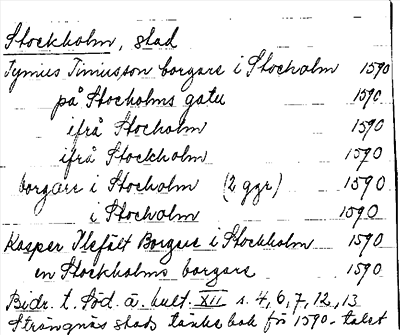 Stockholm, stad
Tymus Timiusson borgare i Stocholm 1590
på Stocholms gatu 1590
ifrå Stocholm 1590
ifrå Stockholm 1590
borgare i Stocholm (2 ggr) 1590
i Stocholm 1590
Kasper Flefält Borgare i Stockholm 1590
en Stockholms borgare 1590
Bidr. t. Söd. ä. kult. XII s. 4, 6, 7, 12, 13
Strängnäs stads tänke bok för 1590-talet